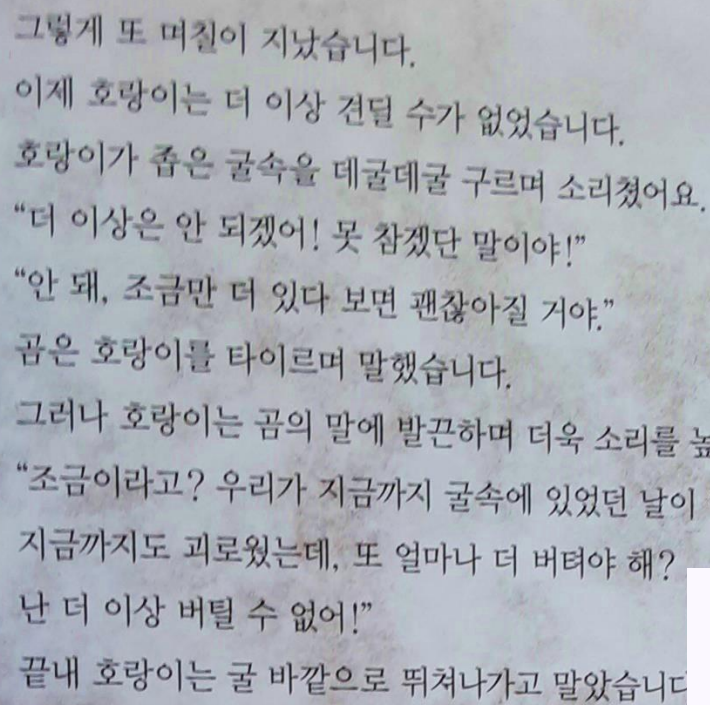 그렇게 또 며칠이 지났습니다.
이제 호랑이는 더 이상 견딜 수가 없었습니다.
호랑이가 좁은 굴속을 데굴데굴 구르며 소리쳤어요.
“더 이상은 안 되겠어! 못 참겠단 말이야!”
“안 돼, 조금만 더 있다 보면 괜찮아질 거야.”
곰은 호랑이를 타이르며 말했습니다.
그러나 호랑이는 곰의 말에 발끈하며 더욱 소리를
“조금이라고? 우리가 지금까지 굴속에 있었던 날이
지금까지도 괴로웠는데, 또 얼마나 더 버텨야 해?
난 더 이상 버틸 수 없어!”
끝내 호랑이는 굴 바깥으로 뛰쳐나가고 말았습니다